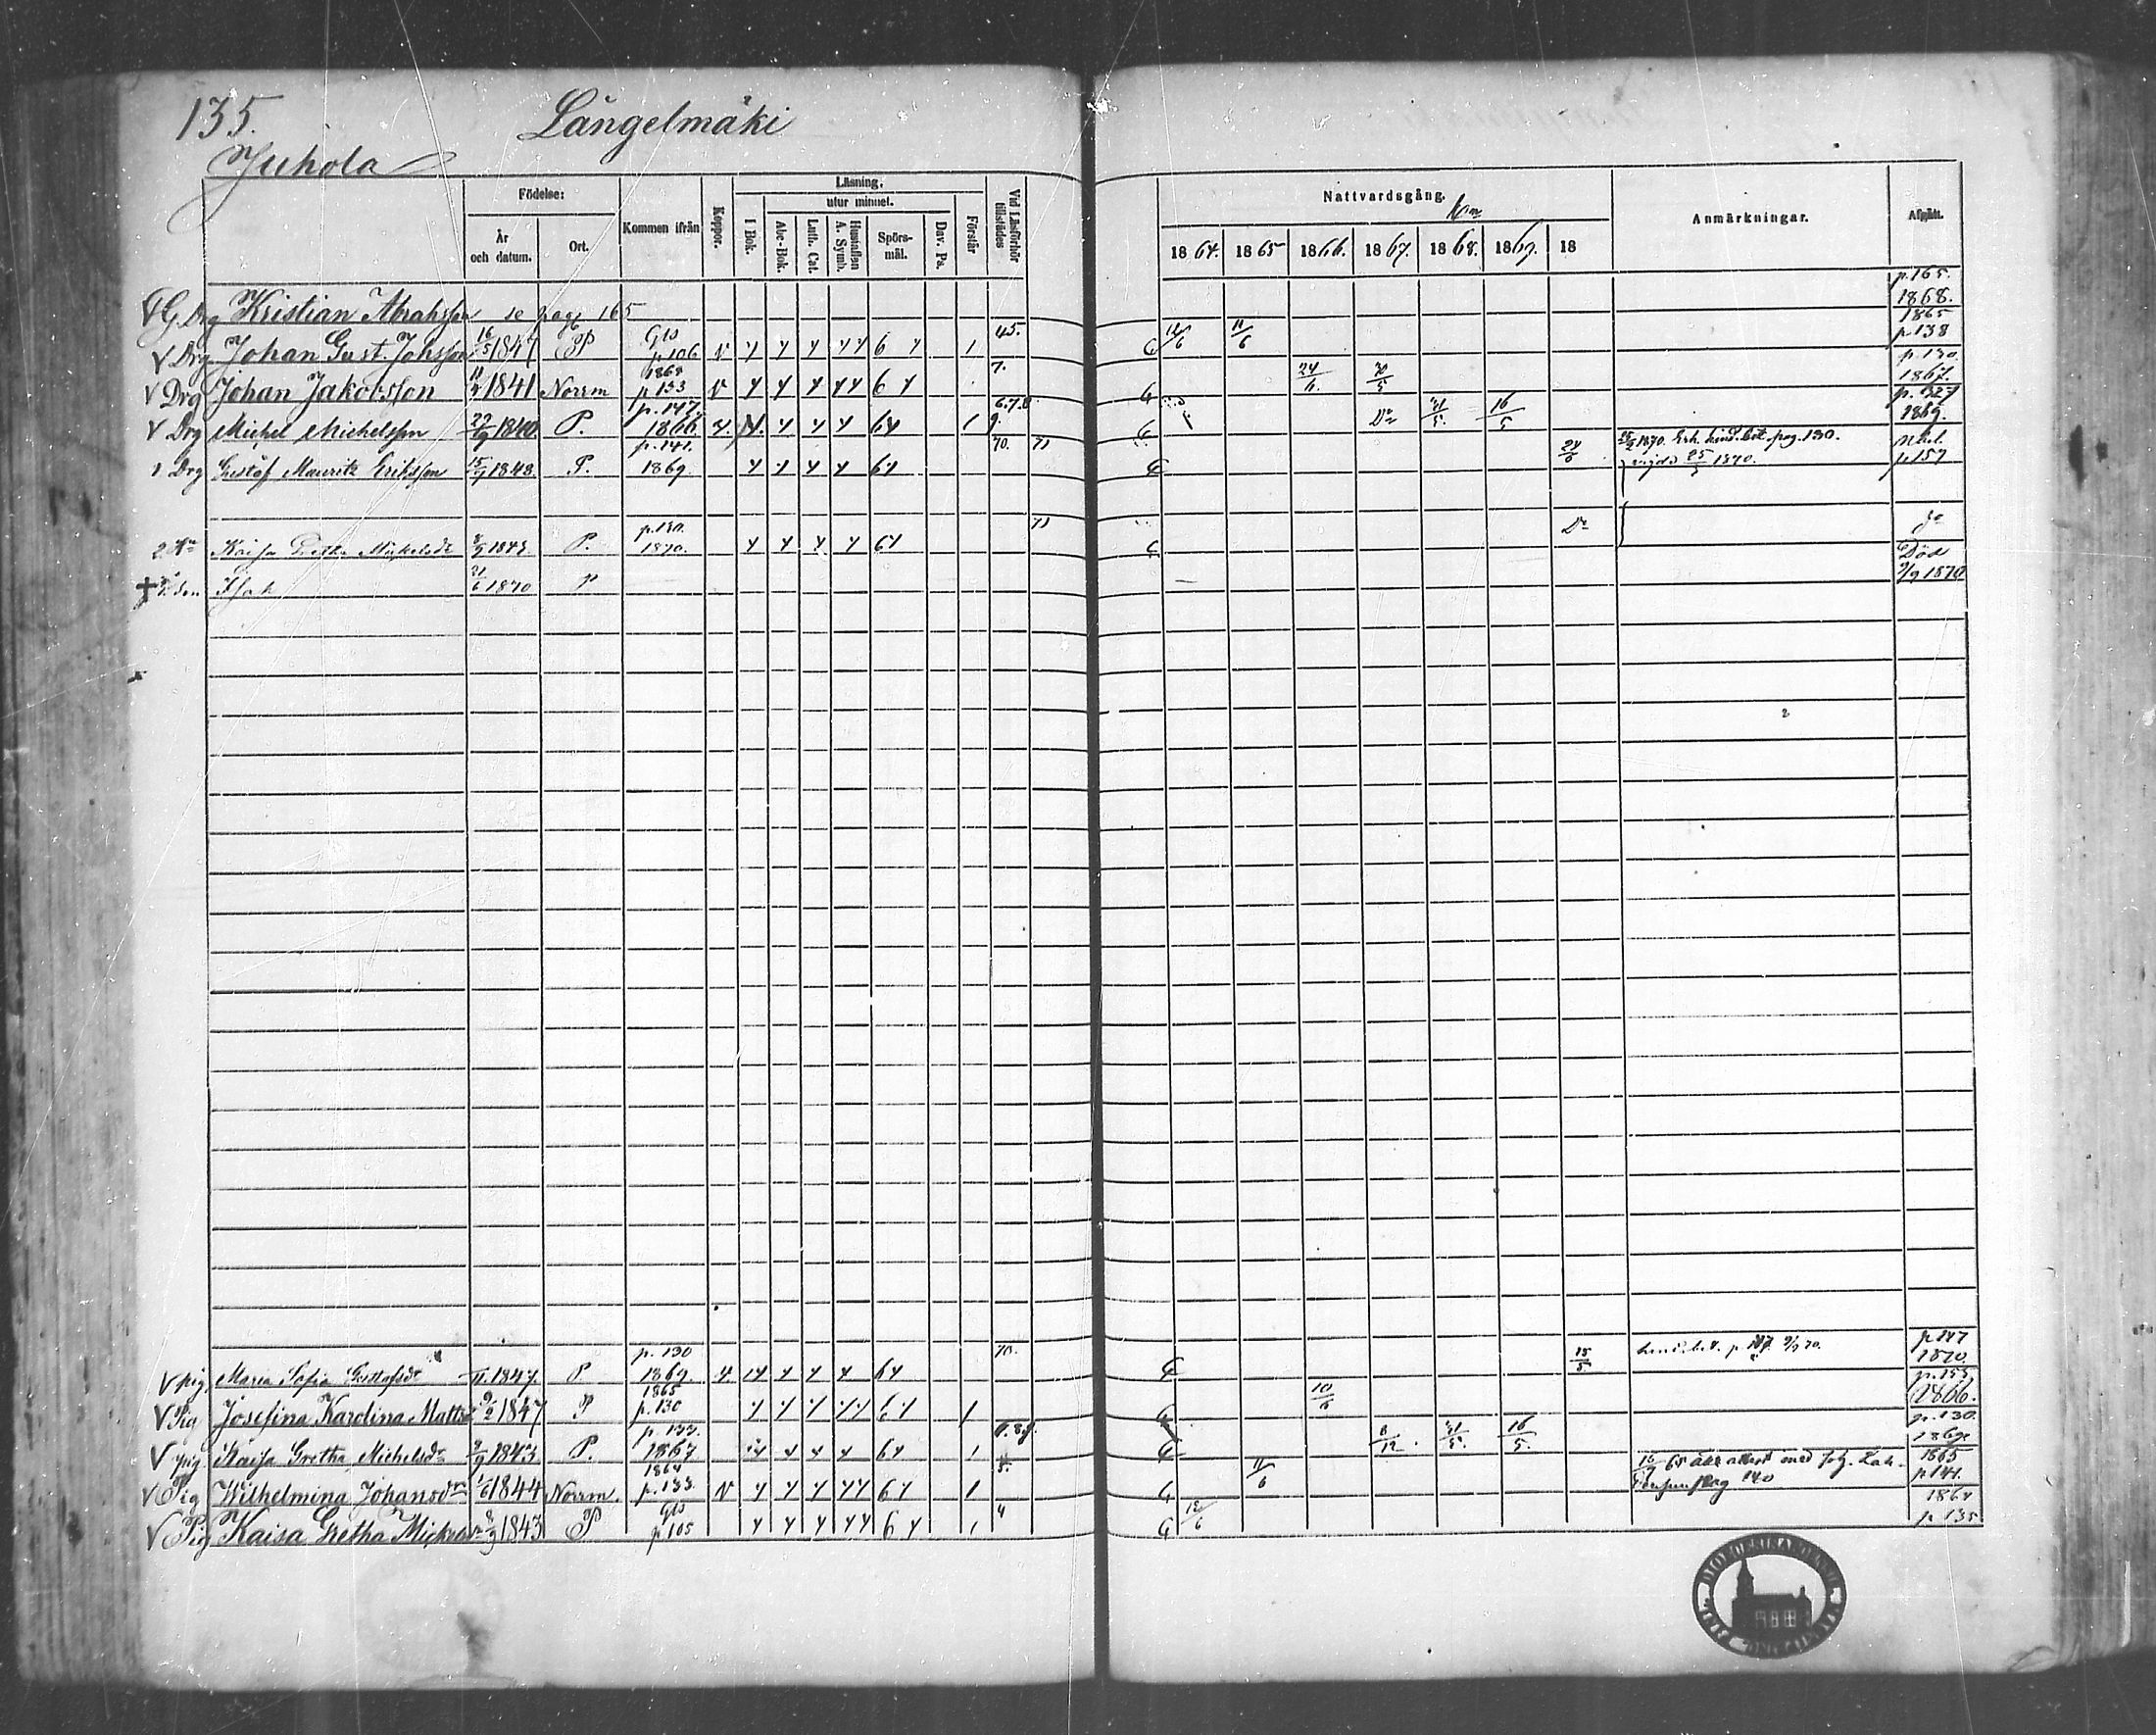 135.
Långelmäki
Juhola
Födelse:
År och datum.
Ort.
Kommen ifrån
Koppor.
Läsning.
utur minnet.
I Bok.
Abc-Bok.
Luth. Cat.
Hustaflan A. Symb.
Spörs-mål.
Dav. Ps.
Förstår
Vid Läsförhör tillstädes
Nattvardsgång.
1864. 1865 1866. 1867. 1868. 1869. 18
Anmärkningar.
Afgått.
G Drg Kristian Abrahsson se page 165 p. 165. 1868.
V Drg Johan Gust. Johsson 16/5 1847 P Gls p 106 v 6 1 45. 12/6 11/6 1865 p 138
V Drg Johan Jakobsson 1841 Norrm p 133 v 6 7. 24/6 p. 130. 1867.
V Drg Michel Michelsson 1840 P. p. 147. 1866 64 1 16/5 p. 127 1869.
1 Drg Gustaf Mauritz Eriksson 15/9 1843. P. p. 141. 1869 64 70. 71 24/6 1870. Erh. hind. bet. pag. 130.
vigde 25/5 1870. p 157
2 Kaisa Gretha Mickelsdr 8/9 1843. P. p. 130. 1870. 64 71 Do do
Isak 21/6 1870 P Död 9/9 1870
V pig Maria Sofia Gustafsdr 1847. P p. 130 1869. 64 70. 15/5 p 147 1870.
V Pig Josefina Karolina Matts 9/2 1847 P 1865 p. 130 1 10/6 p. 153 1866.
V pig Kaisa Gretha Michelsdr 8/9 1843 P. p. 133. 1867 64 1 8/12 16/5. p. 130. 1869
V Pig Wilhelmina Johansdr 1/6 1844 Norrm. 1864 p. 133. v 64 1 5. 11/6 1865 p 141.
pag 140
V Pig Kaisa Gretha Mickelsdr 8/9 1843 P Gls p 105 6 4 12/6 1864 p 135